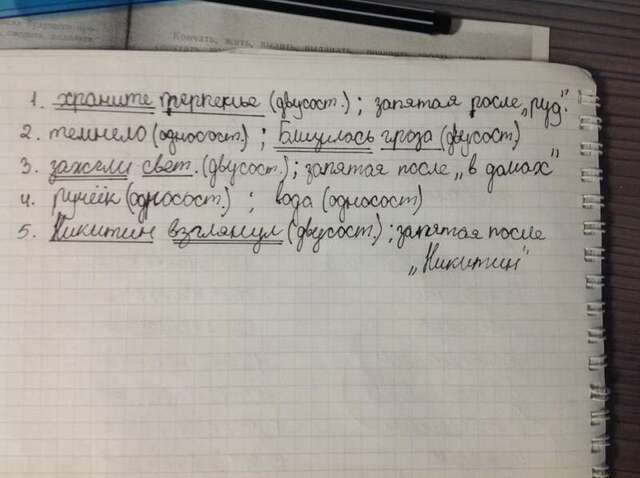 Кончать, жить, выдать, выдавать,
1. храните терпенье (двусост.); запятая после „руд".
2. темнело (односост.); Близилась гроза (двусост)
3. зажгли свет. (двусост.); запятая после „в домах"
4. ручеёк (односост.) ; вода (односост)
5. Никитин взглянул (двусост.) ; запятая после
„Никитин"